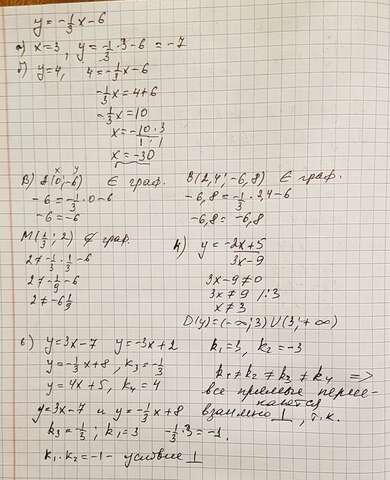 y = -1/3 x - 6
а) x = 3, y = -1/3 · 3 - 6 = -7
б) y = 4, 4 = -1/3 x - 6
-1/3 x = 4 + 6
-1/3 x = 10
x = -10 · 3 / 1 · 1
x = -30
x y
В) A(0; -6) ∈ граф.
-6 = -1/3 · 0 - 6
-6 = -6
B(2,4; -6,8) ∈ граф.
-6,8 = -1/3 · 2,4 - 6
-6,8 = -6,8
M(1/3; 2) ∉ граф.
2 ≠ -1/3 · 1/3 - 6
2 ≠ -1/9 - 6
2 ≠ -6 1/9
д) y = -2x + 5 / 3x - 9
3x - 9 ≠ 0
3x ≠ 9 /:3
x ≠ 3
D(y) = (-∞; 3) ∪ (3; +∞)
е) y = 3x - 7 y = -3x + 2 k₁ = 3, k₂ = -3
y = -1/3 x + 8, k₃ = -1/3
y = 4x + 5, k₄ = 4
k₁ ≠ k₂ ≠ k₃ ≠ k₄ =>
все прямые пересе-
каются
y = 3x - 7 и y = -1/3 x + 8 взаимно ⊥, т.к.
k₃ = -1/3; k₁ = 3 -1/3 · 3 = -1.
k₁ · k₂ = -1 - условие ⊥